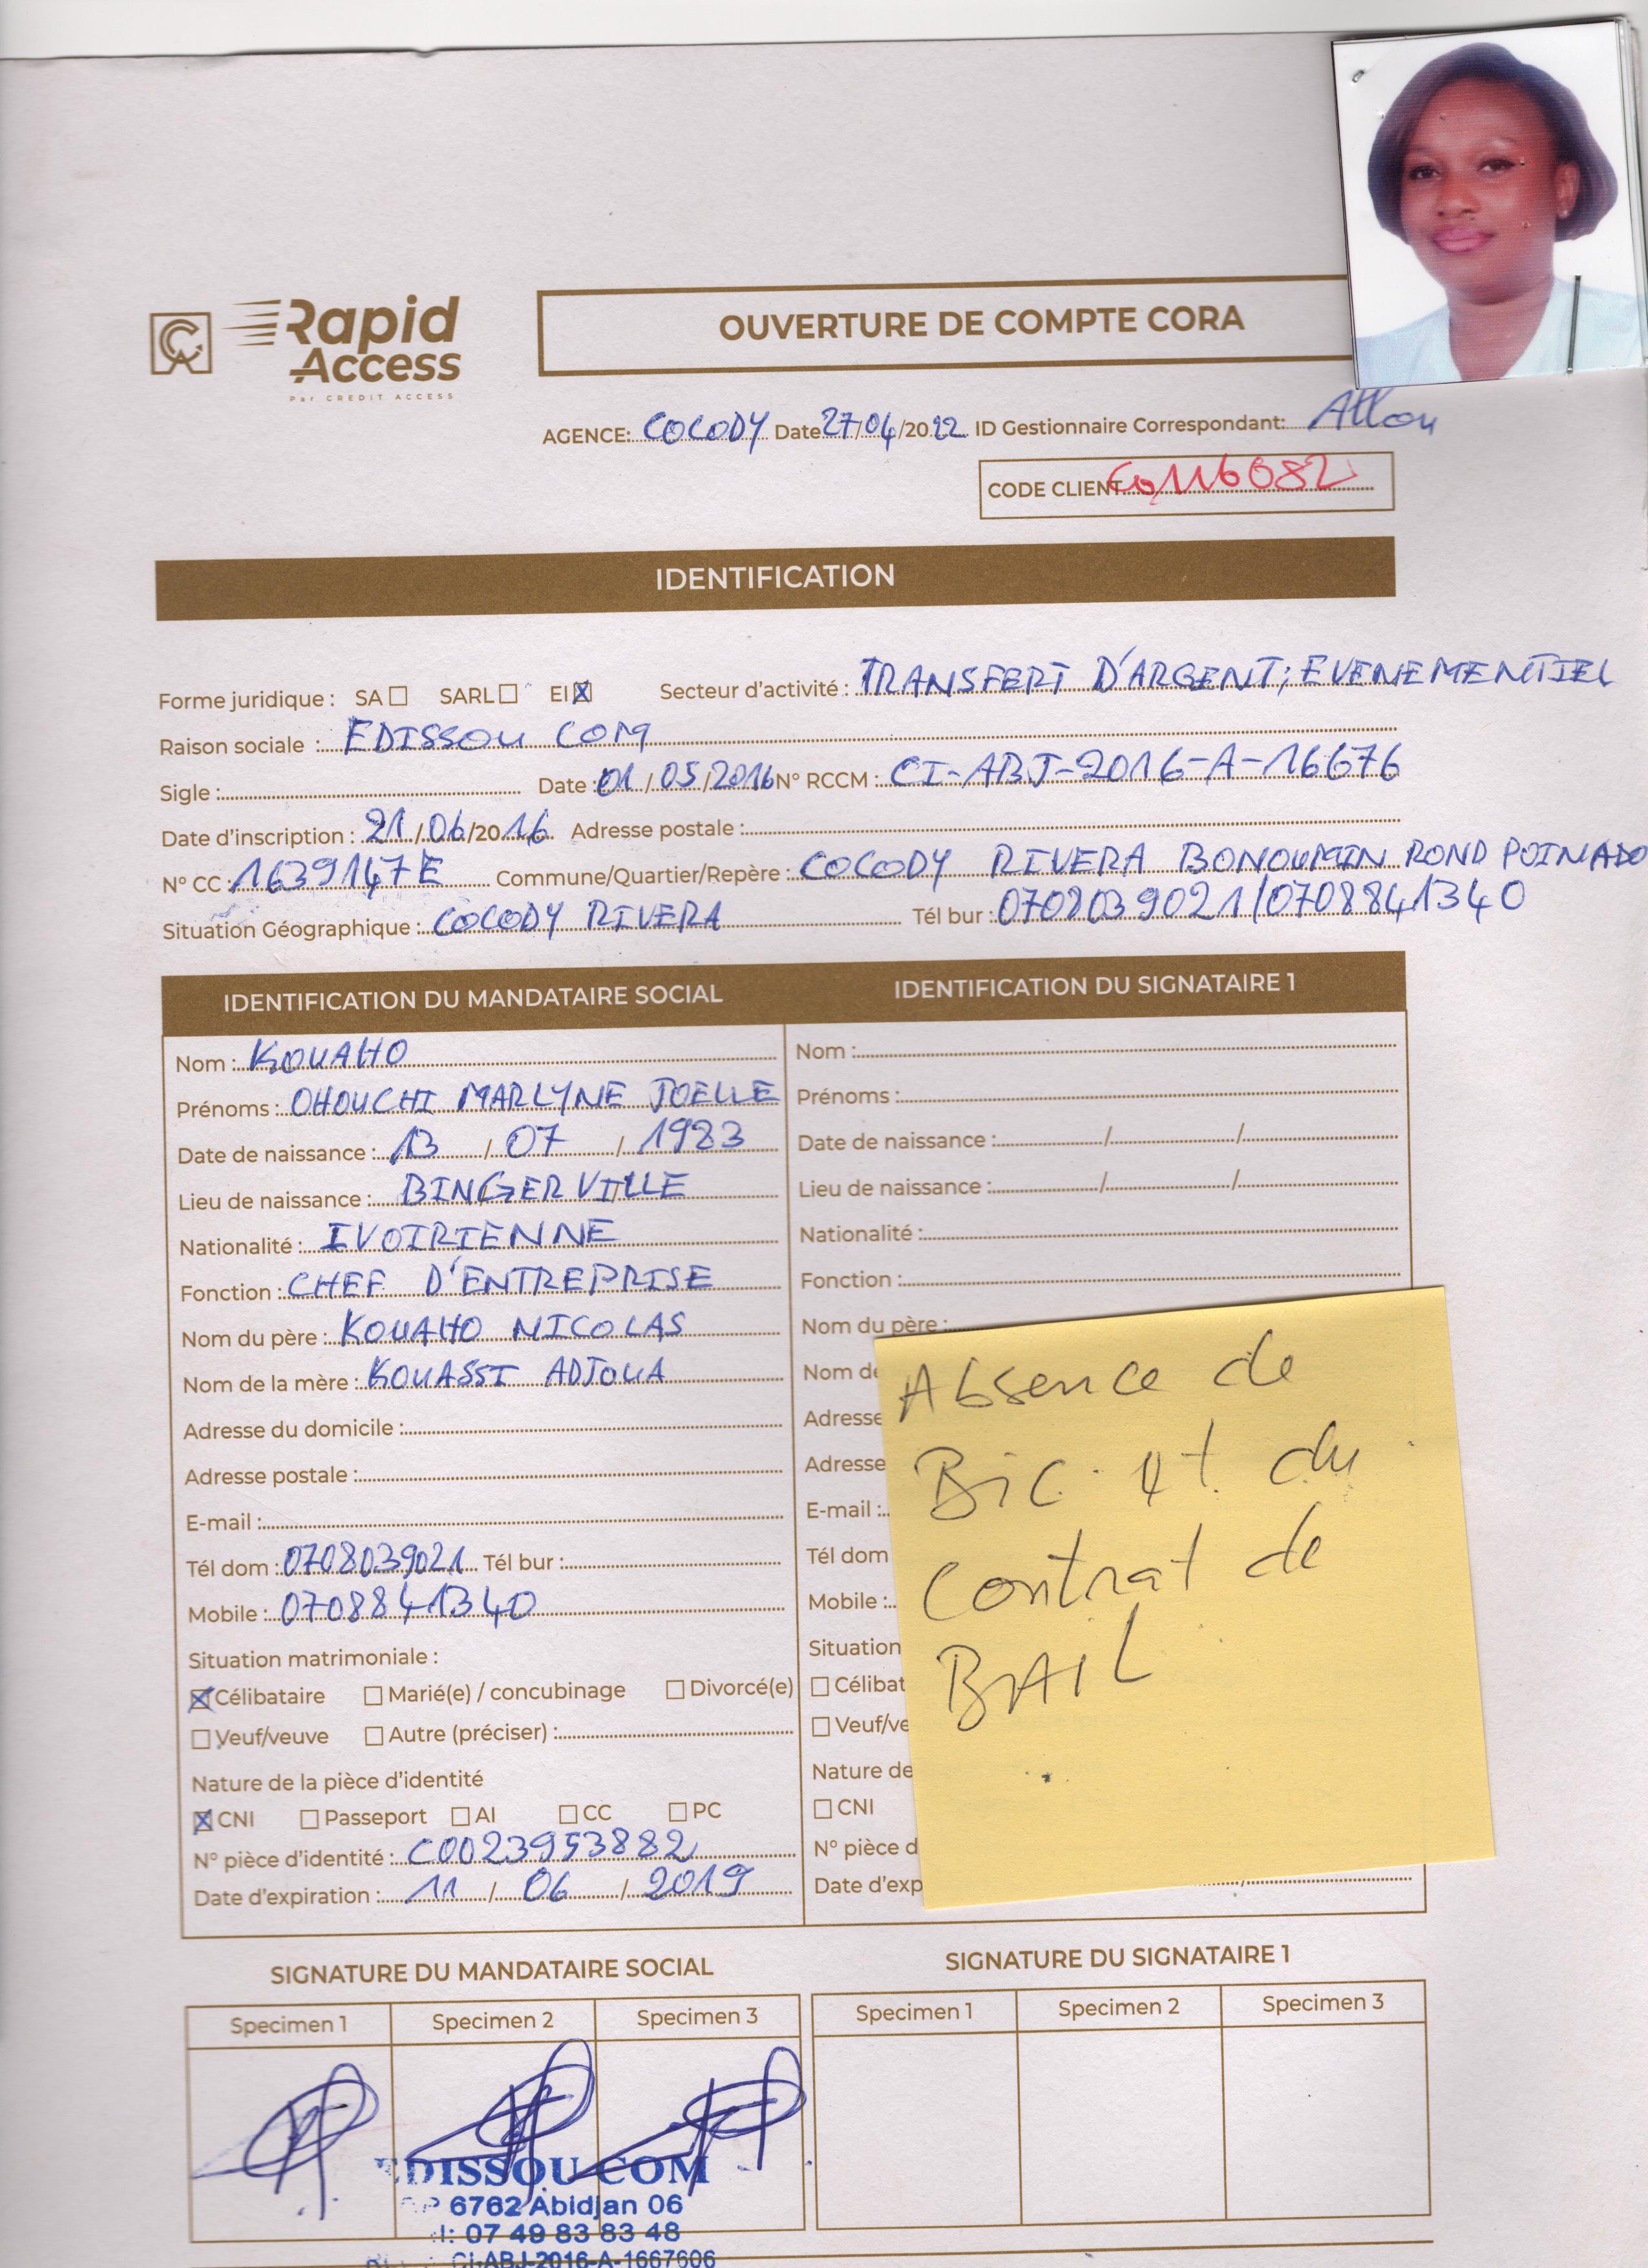 Rapid
Access
Par CREDIT ACCESS
OUVERTURE DE COMPTE CORA
AGENCE: COCODY Date 27/04/2022 ID Gestionnaire Correspondant: Allou
CODE CLIENT
IDENTIFICATION
Forme juridique : SA ☐ SARL ☐ EI ☒ Secteur d'activité : TRANSFERT D'ARGENT; EVENEMENTIEL
Raison sociale : EDISSOU COM
Sigle : Date : 01/05/2016 N° RCCM : CI-ABJ-2016-A-16676
Date d'inscription : 21/06/2016 Adresse postale :
N° CC : 1639147E Commune/Quartier/Repère : COCODY RIVERA BONOUMIN ROND POIN ADO
Situation Géographique : COCODY RIVERA Tél bur : 0708039021/0708841340
IDENTIFICATION DU MANDATAIRE SOCIAL
Nom : KOUAHO
Prénoms : OHOUCHI MARLYNE JOELLE
Date de naissance : 13 / 07 / 1983
Lieu de naissance : BINGERVILLE
Nationalité : IVOIRIENNE
Fonction : CHEF D'ENTREPRISE
Nom du père : KOUAHO NICOLAS
Nom de la mère : KOUASSI ADJOUA
Adresse du domicile :
Adresse postale :
E-mail :
Tél dom : 0708039021 Tél bur :
Mobile : 0708841340
Situation matrimoniale :
☒ Célibataire ☐ Marié(e) / concubinage ☐ Divorcé(e)
☐ Veuf/veuve ☐ Autre (préciser) :
Nature de la pièce d'identité
☒ CNI ☐ Passeport ☐ AI ☐ CC ☐ PC
N° pièce d'identité : C0023953882
Date d'expiration : 11 / 06 / 2019
IDENTIFICATION DU SIGNATAIRE 1
Nom :
Prénoms :
Date de naissance : / /
Lieu de naissance : / /
Nationalité :
Fonction :
Nom du père :
Nom de
Adresse
Adresse
E-mail :
Tél dom
Mobile :
Situation
☐ Célibat
☐ Veuf/ve
Nature de
☐ CNI
N° pièce d
Date d'exp
Absence de
Bic et du
Contrat de
BAIL
SIGNATURE DU MANDATAIRE SOCIAL
Specimen 1 Specimen 2 Specimen 3
SIGNATURE DU SIGNATAIRE 1
Specimen 1 Specimen 2 Specimen 3
EDISSOU COM
6762 Abidjan 06
: 07 49 83 83 48
CI-ABJ-2016-A-1667606